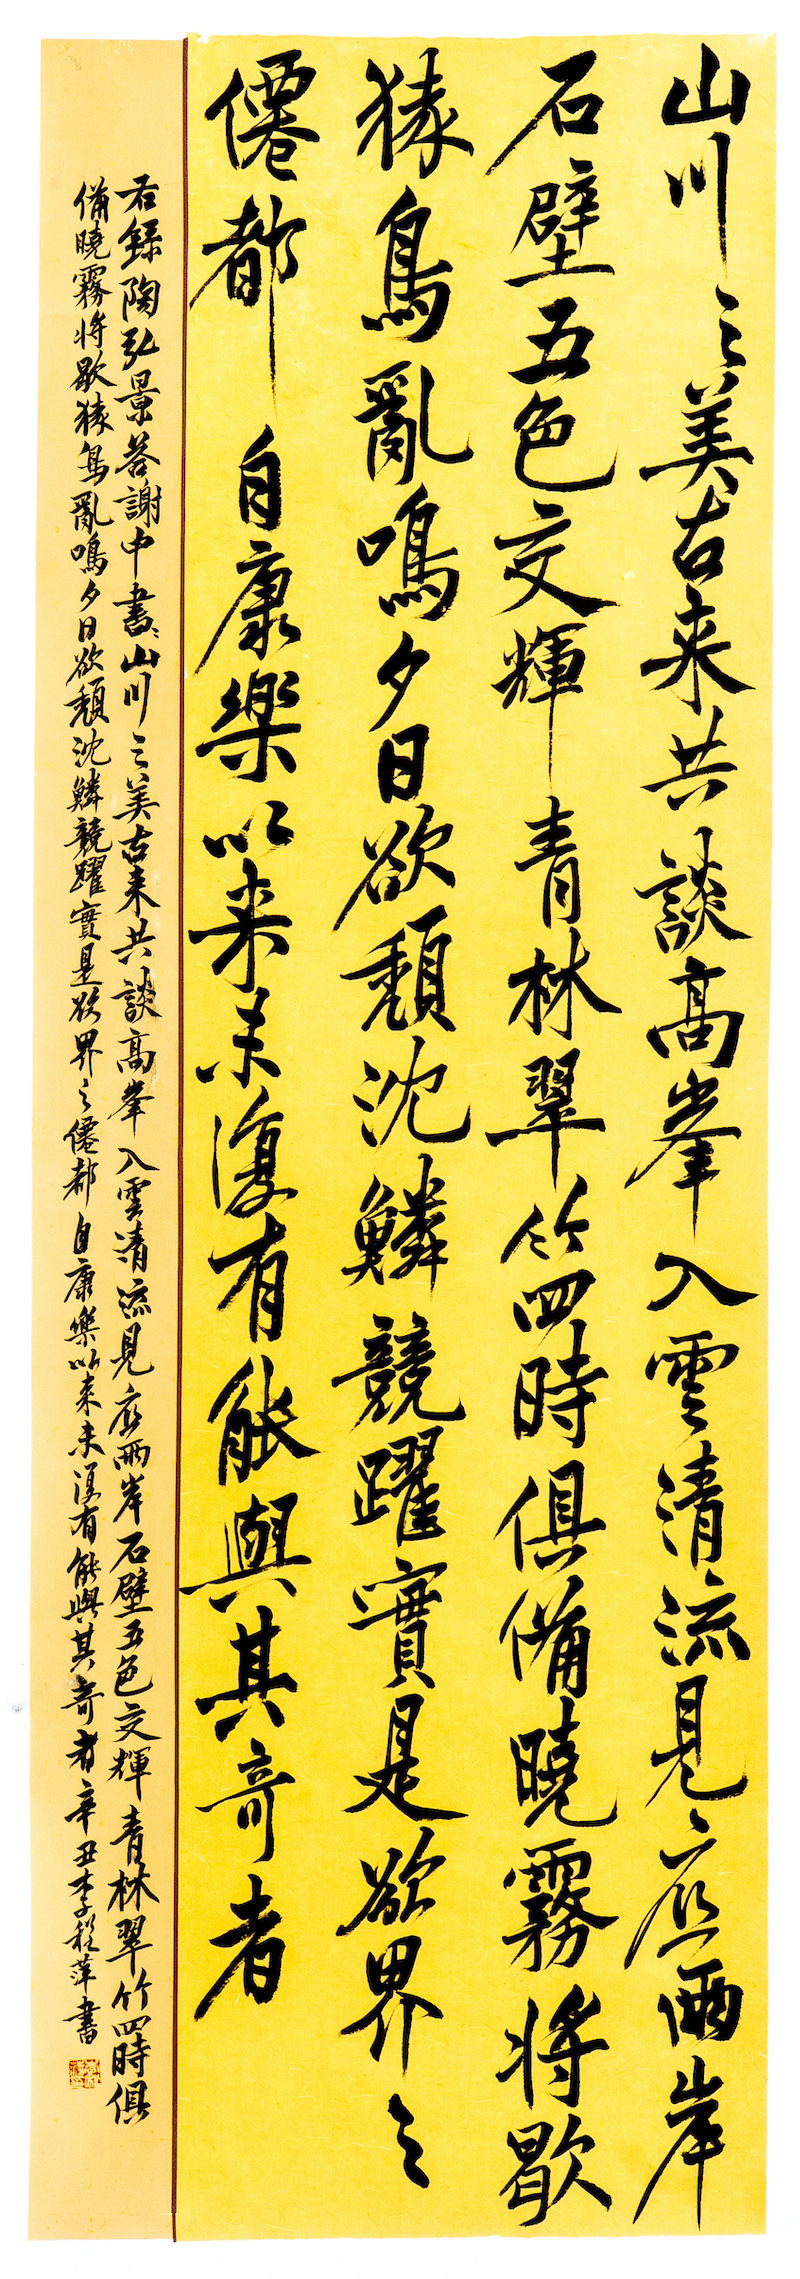 山川之美古来共談高峯入雲清流見底兩岸
石壁五色交輝青林翠竹四時俱備曉霧將歇
猿鳥亂鳴夕日欲頹沈鱗競躍實是欲界之
僊都自康樂以来未復有能與其奇者
右錄陶弘景答謝中書山川之美古来共談高峯入雲清流見底兩岸石壁五色交輝青林翠竹四時俱
備曉霧將歇猿鳥亂鳴夕日欲頹沈鱗競躍實是欲界之僊都自康樂以来未復有能與其奇者辛丑李程萍書